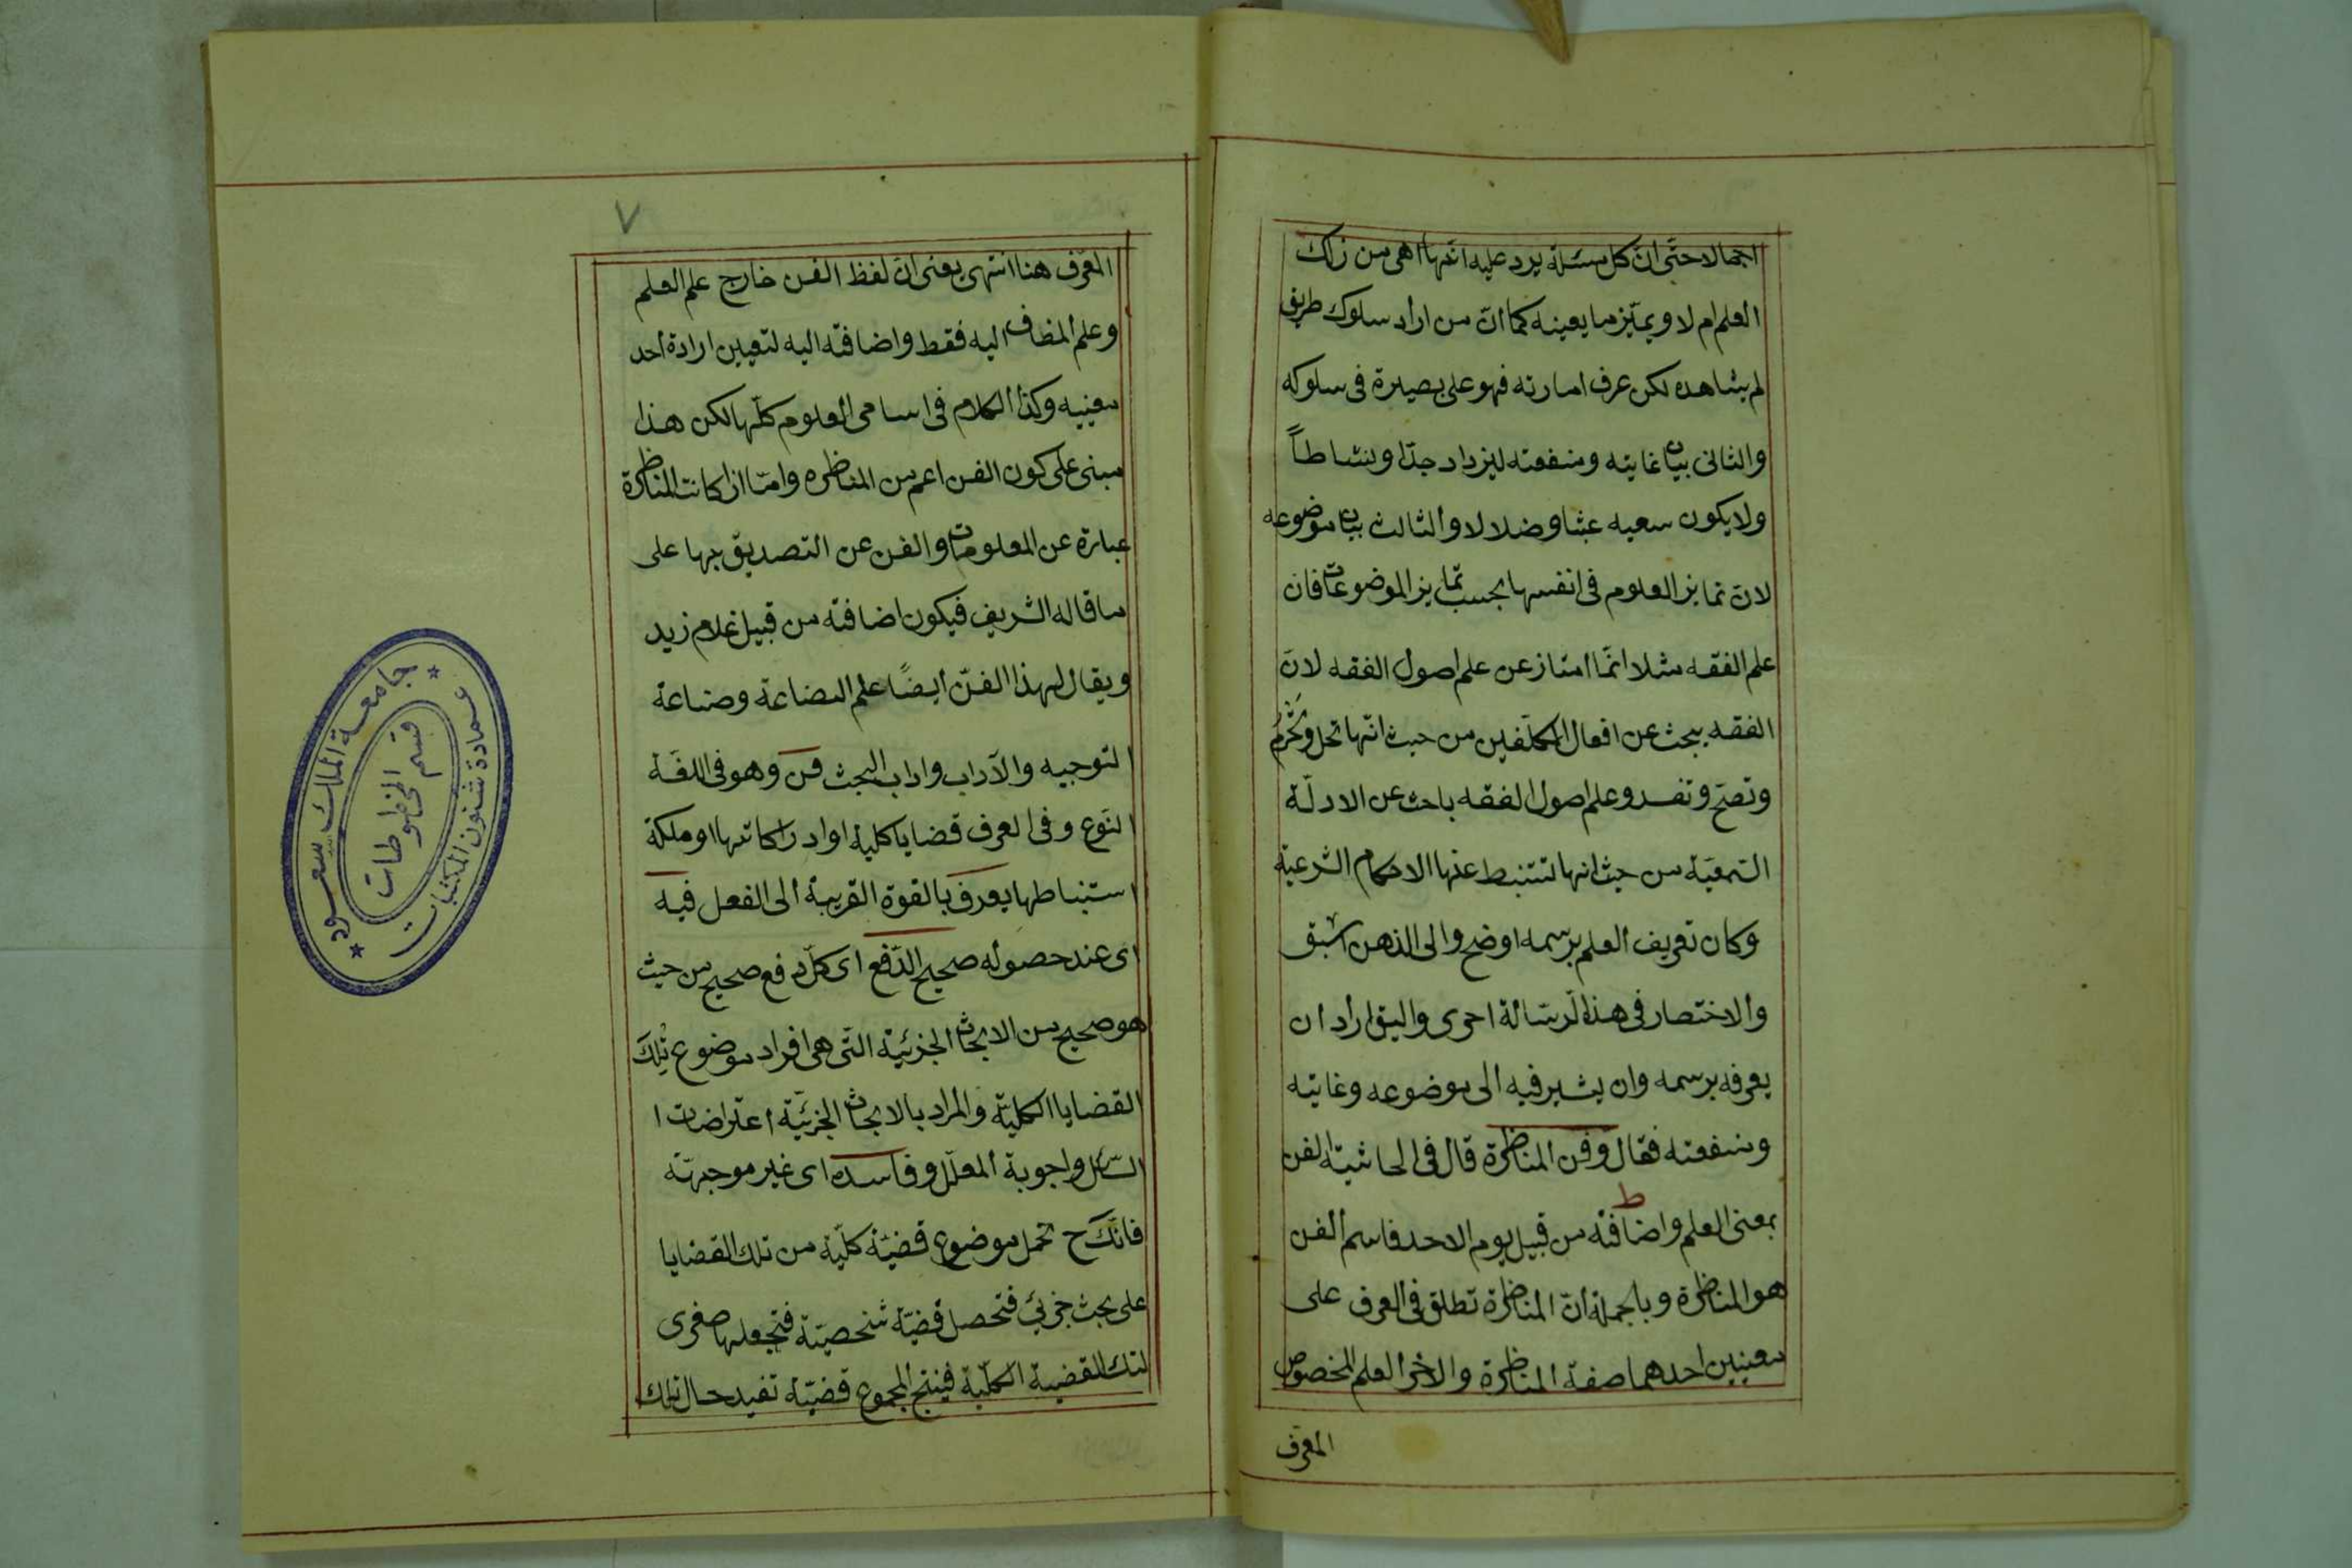 اجمالا حتى ان كل مسئلة يرد عليه انها اهى من ذلك
العلم ام لا ويميز ما يعينه كما ان من اراد سلوك طريق
لم يشاهده لكن عرف امارته فهو على بصيرة فى سلوكه
والثانى بيان غايته ومنفعته ليزداد جدّا ونشاطاً
ولا يكون سعيه عبثا وضلالا والثالث بيان موضوعه
لان تمايز العلوم فى انفسها بحسب تمايز الموضوعات فان
علم الفقه مثلا انّما امتاز عن علم اصول الفقه لانّ
الفقه يبحث عن افعال المكلّفين من حيث انّها تحل وتحرُم
وتصحّ وتفسد وعلم اصول الفقه باحث عن الادلّة
السّمعيّة من حيث انها تستنبط عنها الاحكام الشرعيّة
وكان تعريف العلم برسمه اوضح والى الذهن اسبق
والاختصار فى هذه الرّسالة احرى واليق اراد ان
يعرفه برسمه وان يشير فيه الى موضوعه وغايته
ومنفعته فقال وفن المناظرة قال فى الحاشيّة الفن
ط
بمعنى العلم واضافته من قبيل يوم الاحد فاسم الفن
هو المناظرة وبالجملة انّ المناظرة تطلق فى العرف على
معنيين احدهما صفة المناظرة والاخر العلم المخصوص
المعرّف
٧
المعرّف هنا انتهى يعنى انّ لفظ الفن خارج علم العلم
وعلم المضاف اليه فقط واضافته اليه لتعيين ارادة احد
معنييه وكذا الكلام فى اسامى العلوم كلّها لكن هذا
مبنى على كون الفن اعم من المناظره وامّا اذا كانت المناظرة
عبارة عن المعلومات والفن عن التصديق بها على
ما قاله الشريف فيكون اضافته من قبيل غلام زيد
ويقال لهذا الفنّ ايضًا علم البضاعة وصناعة
التوجيه والآداب واداب البحث فن وهو فى اللغة
النّوع وفى العرف قضايا كلية او ادراكاتها او ملكة
استنباطها يعرف بالقوة القريبة الى الفعل فيه
اى عند حصوله صحيح الدّفع اى كلّ دفع صحيح من حيث
هو صحيح من الابحاث الجزئيّة التّى هى افراد موضوع تلك
القضايا الكلّيّة والمراد بالابحاث الجزئيّة اعتراضات ا
السّائل واجوبة المعلّل وفاسده اى غير موجّهة
فانّك ح تحمل موضوع قضيّة كلّية من تلك القضايا
على بحث جزئي فتحصل قضيّة شخصيّة فتجعلها صغرى
لتلك القضية الكلّية فينتج المجموع قضيّة تفيد حال تلك
جامعة الملك سعود
قسم المخطوطات
عمادة شئون المكتبات